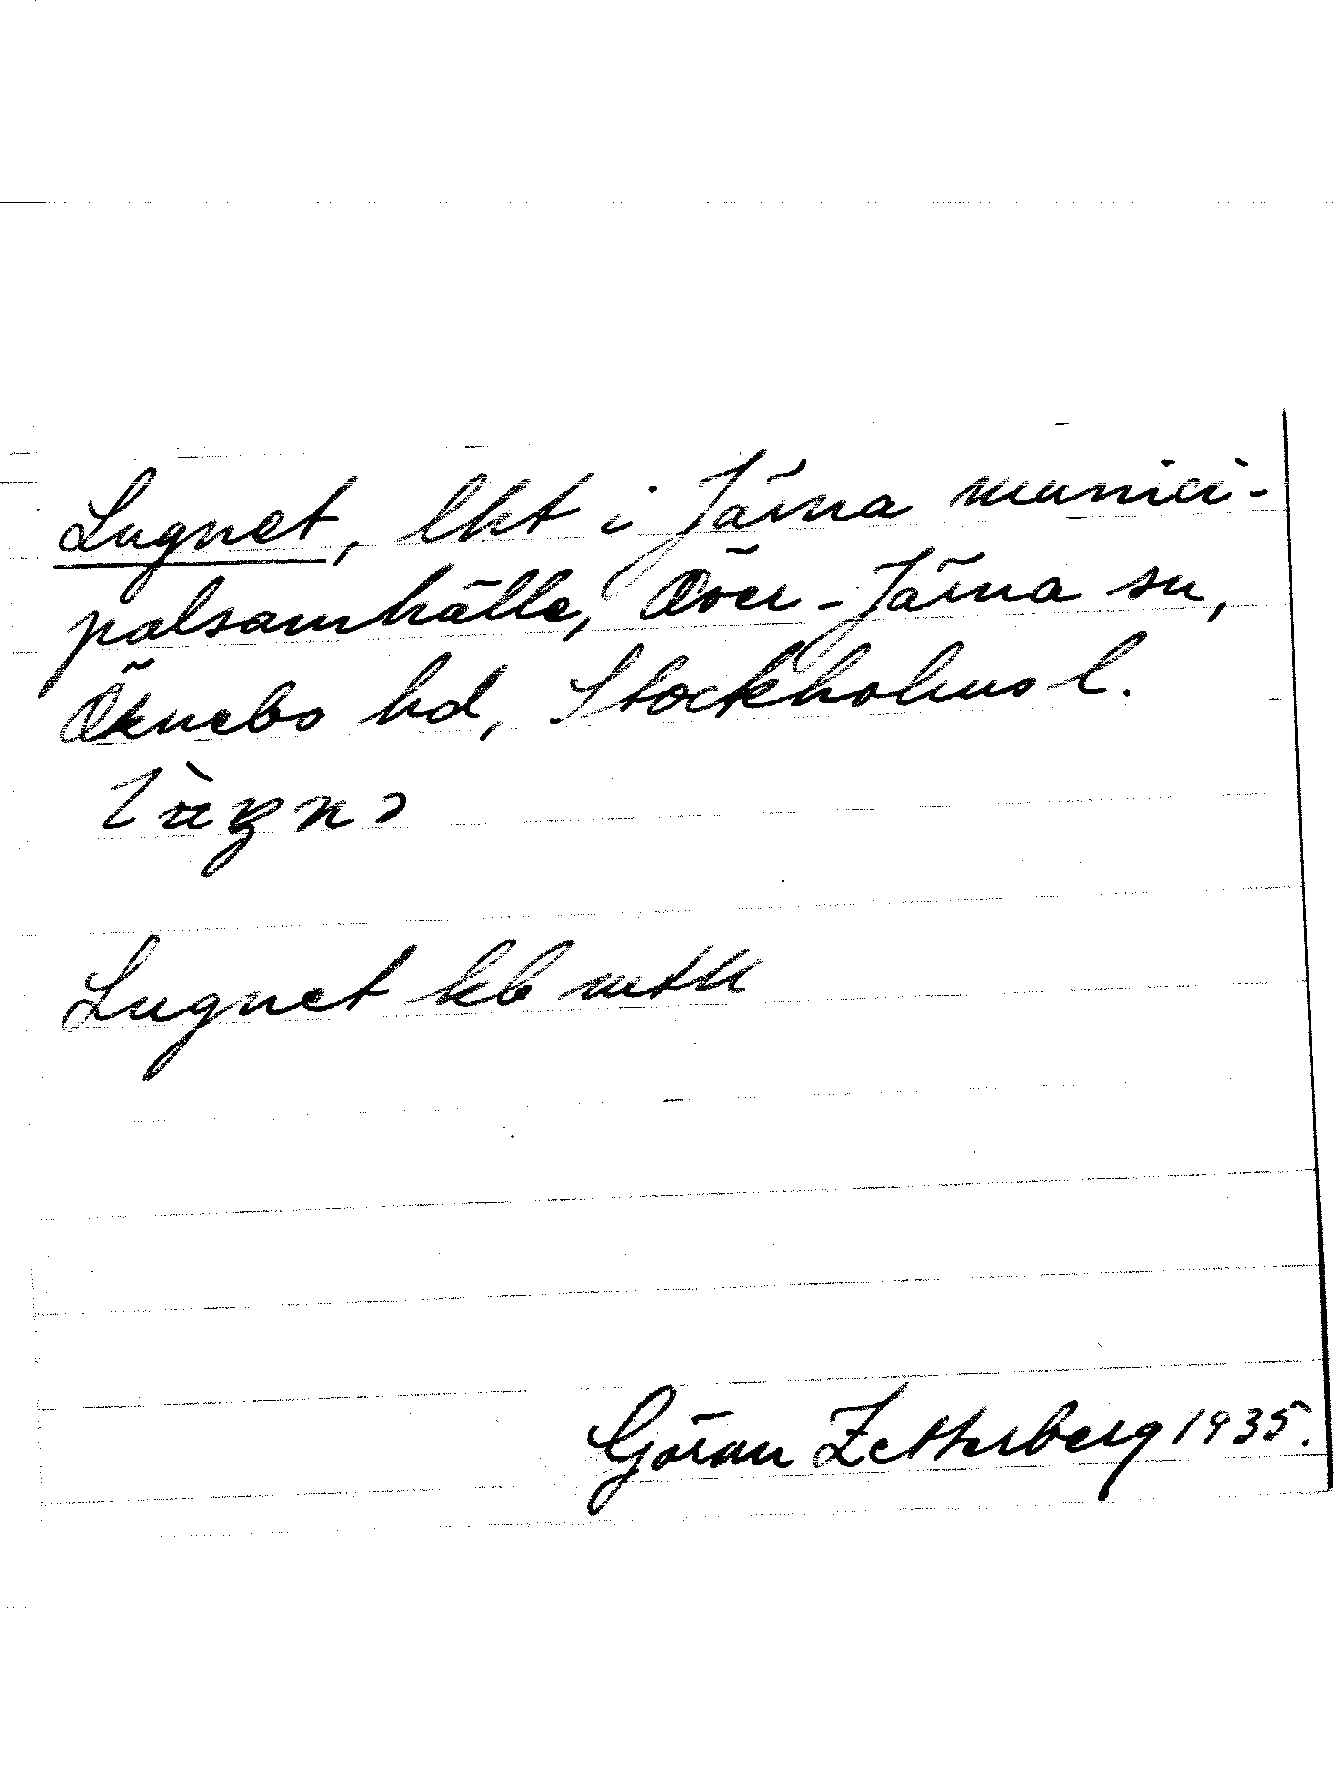 Lugnet, lkt i Järna munici-
palsamhälle, Över-Järna sn,
Öknebo hd, Stockholms l.
Lugnet kb mtll
Göran Zetterberg 1935.